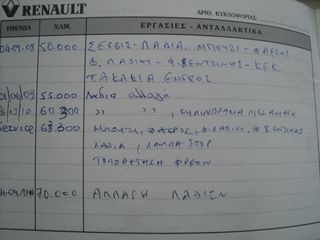 RENAULT
ΑΡΙΘ. ΚΥΚΛΟΦΟΡΙΑΣ
ΗΜ/ΝΙΑ ΧΛΜ. ΕΡΓΑΣΙΕΣ - ΑΝΤΑΛΛΑΚΤΙΚΑ
04-09-08 50.000 ΣΕΡΒΙΣ-ΛΑΔΙΑ. ΜΠΟΥΖΙ-Φ.ΑΕΡΟΣ
Φ. ΛΑΔΙΟΥ-Φ.ΒΕΝΖΙΝΗΣ-ΚΕΚ
ΤΑΚΑΚΙΑ ΕΜΠΡΟΣ
01/06/09 55.000 Λάδια αλλαγή
60.300 " " , ΚΥΛΙΝΔΡΑΚΙΑ ΠΙΣΩ
Service 63.300 ΜΠΟΥΖΙ, Φ.ΑΕΡΟΣ, Φ.ΛΑΔΙΟΥ, Φ.ΒΕΝΖΙΝΑΣ
ΛΑΔΙΑ, ΛΑΜΠΑ STOP
ΤΟΠΟΘΕΤΗΣΗ ΦΡΕΝΩΝ
70.000 ΑΛΛΑΓΗ ΛΑΔΙΩΝ